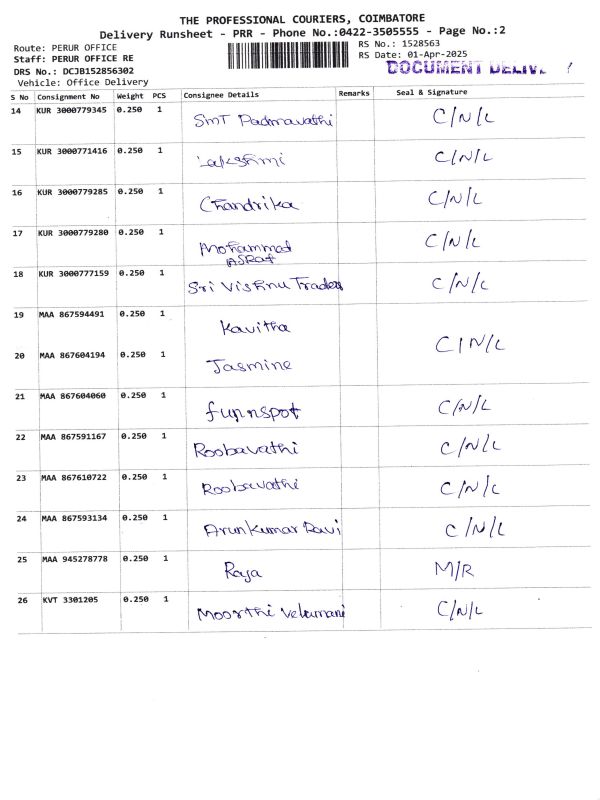 THE PROFESSIONAL COURIERS, COIMBATORE
Delivery Runsheet - PRR - Phone No.:0422-3505555 - Page No.:2
Route: PERUR OFFICE
RS No.: 1528563
Staff: PERUR OFFICE RE
RS Date: 01-Apr-2025
DRS No.: DCJB152856302
DOCUMENT DELIV
Vehicle: Office Delivery
S No Consignment No Weight PCS Consignee Details Remarks Seal & Signature
14 KUR 3000779345 0.250 1 SmT Padmavathi C/N/L
15 KUR 3000771416 0.250 1 Lakshmi C/N/L
16 KUR 3000779285 0.250 1 Chandrika C/N/L
17 KUR 3000779280 0.250 1 Mohammad C/N/L
ASRaf
18 KUR 3000777159 0.250 1 Sri Vishnu Traders C/N/L
19 MAA 867594491 0.250 1 Kavitha
C/N/L
20 MAA 867604194 0.250 1 Jasmine
21 MAA 867604060 0.250 1 funnspot C/N/L
22 MAA 867591167 0.250 1 Roobavathi C/N/L
23 MAA 867610722 0.250 1 Roobavathi C/N/L
24 MAA 867593134 0.250 1 Arunkumar Ravi C/N/L
25 MAA 945278778 0.250 1 Raja M/R
26 KVT 3301205 0.250 1 Moorthi Velumani C/N/L